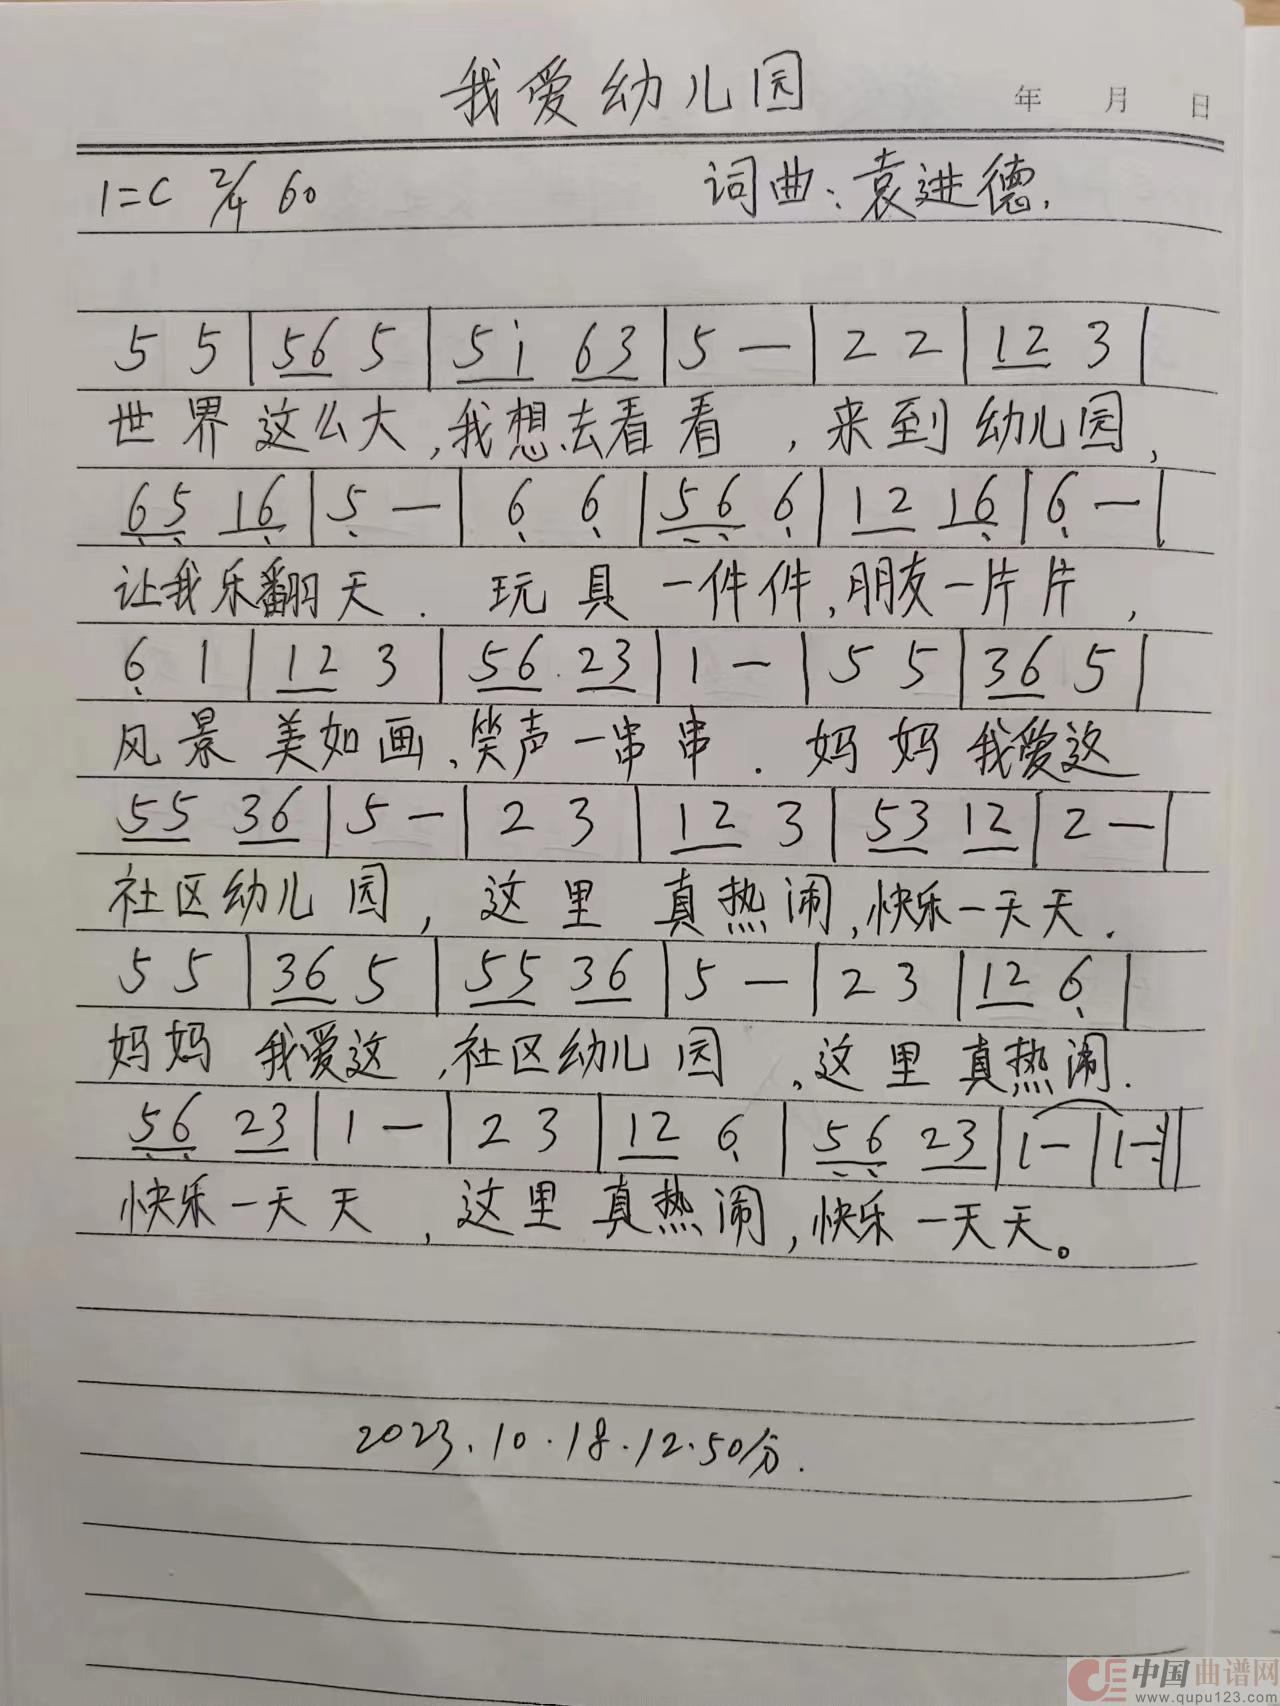 我爱幼儿园
年 月 日
1=C 2/4 60 词曲：袁进德.
5 5 | 56 5 | 5i 63 | 5 — | 2 2 | 12 3 |
世界这么大,我想去看看,来到幼儿园,
65 16 | 5 — | 6 6 | 56 6 | 12 16 | 6 — |
让我乐翻天.玩具一件件,朋友一片片,
6 1 | 12 3 | 56 23 | 1 — | 5 5 | 36 5 |
风景美如画,笑声一串串.妈妈我爱这
55 36 | 5 — | 2 3 | 12 3 | 53 12 | 2 — |
社区幼儿园,这里真热闹,快乐一天天.
5 5 | 36 5 | 55 36 | 5 — | 2 3 | 12 6 |
妈妈我爱这,社区幼儿园,这里真热闹.
56 23 | 1 — | 2 3 | 12 6 | 56 23 | 1 — | 1 — :||
快乐一天天,这里真热闹,快乐一天天。
2023.10.18.12.50分.
中国曲谱网
www.qupu123.com